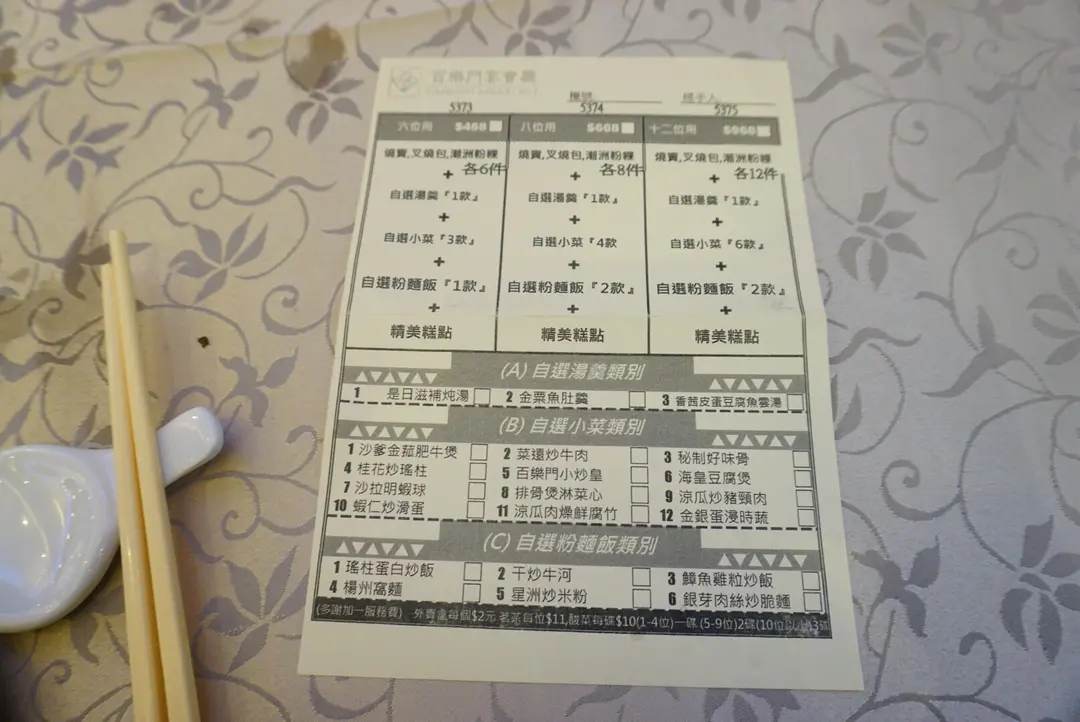 百樂門宴會廳
檯號 經手人
5373 5374 5375
六位用 $468 八位用 $608 十二位用 $968
燒賣,叉燒包,潮洲粉粿 各6件 燒賣,叉燒包,潮洲粉粿 各8件 燒賣,叉燒包,潮洲粉粿 各12件
+ + +
自選湯羹『1款』 自選湯羹『1款』 自選湯羹『1款』
+ + +
自選小菜『3款』 自選小菜『4款』 自選小菜『6款』
+ + +
自選粉麵飯『1款』 自選粉麵飯『2款』 自選粉麵飯『2款』
+ + +
精美糕點 精美糕點 精美糕點
(A) 自選湯羹類別
1 是日滋補炖湯 2 金粟魚肚羹 3 香茜皮蛋豆腐魚雲湯
(B) 自選小菜類別
1 沙爹金菇肥牛煲 2 菜遠炒牛肉 3 秘制好味骨
4 桂花炒瑤柱 5 百樂門小炒皇 6 海皇豆腐煲
7 沙拉明蝦球 8 排骨煲淋菜心 9 涼瓜炒豬頸肉
10 蝦仁炒滑蛋 11 涼瓜肉燥鮮腐竹 12 金銀蛋浸時蔬
(C) 自選粉麵飯類別
1 瑤柱蛋白炒飯 2 干炒牛河 3 鱆魚雞粒炒飯
4 楊州窩麵 5 星洲炒米粉 6 銀芽肉絲炒脆麵
(多謝加一服務費) 外賣盒每個$2元 茗茶每位$11,酸菜每碟$10(1-4位)一碟 (5-9位)2碟(10位以上)3碟